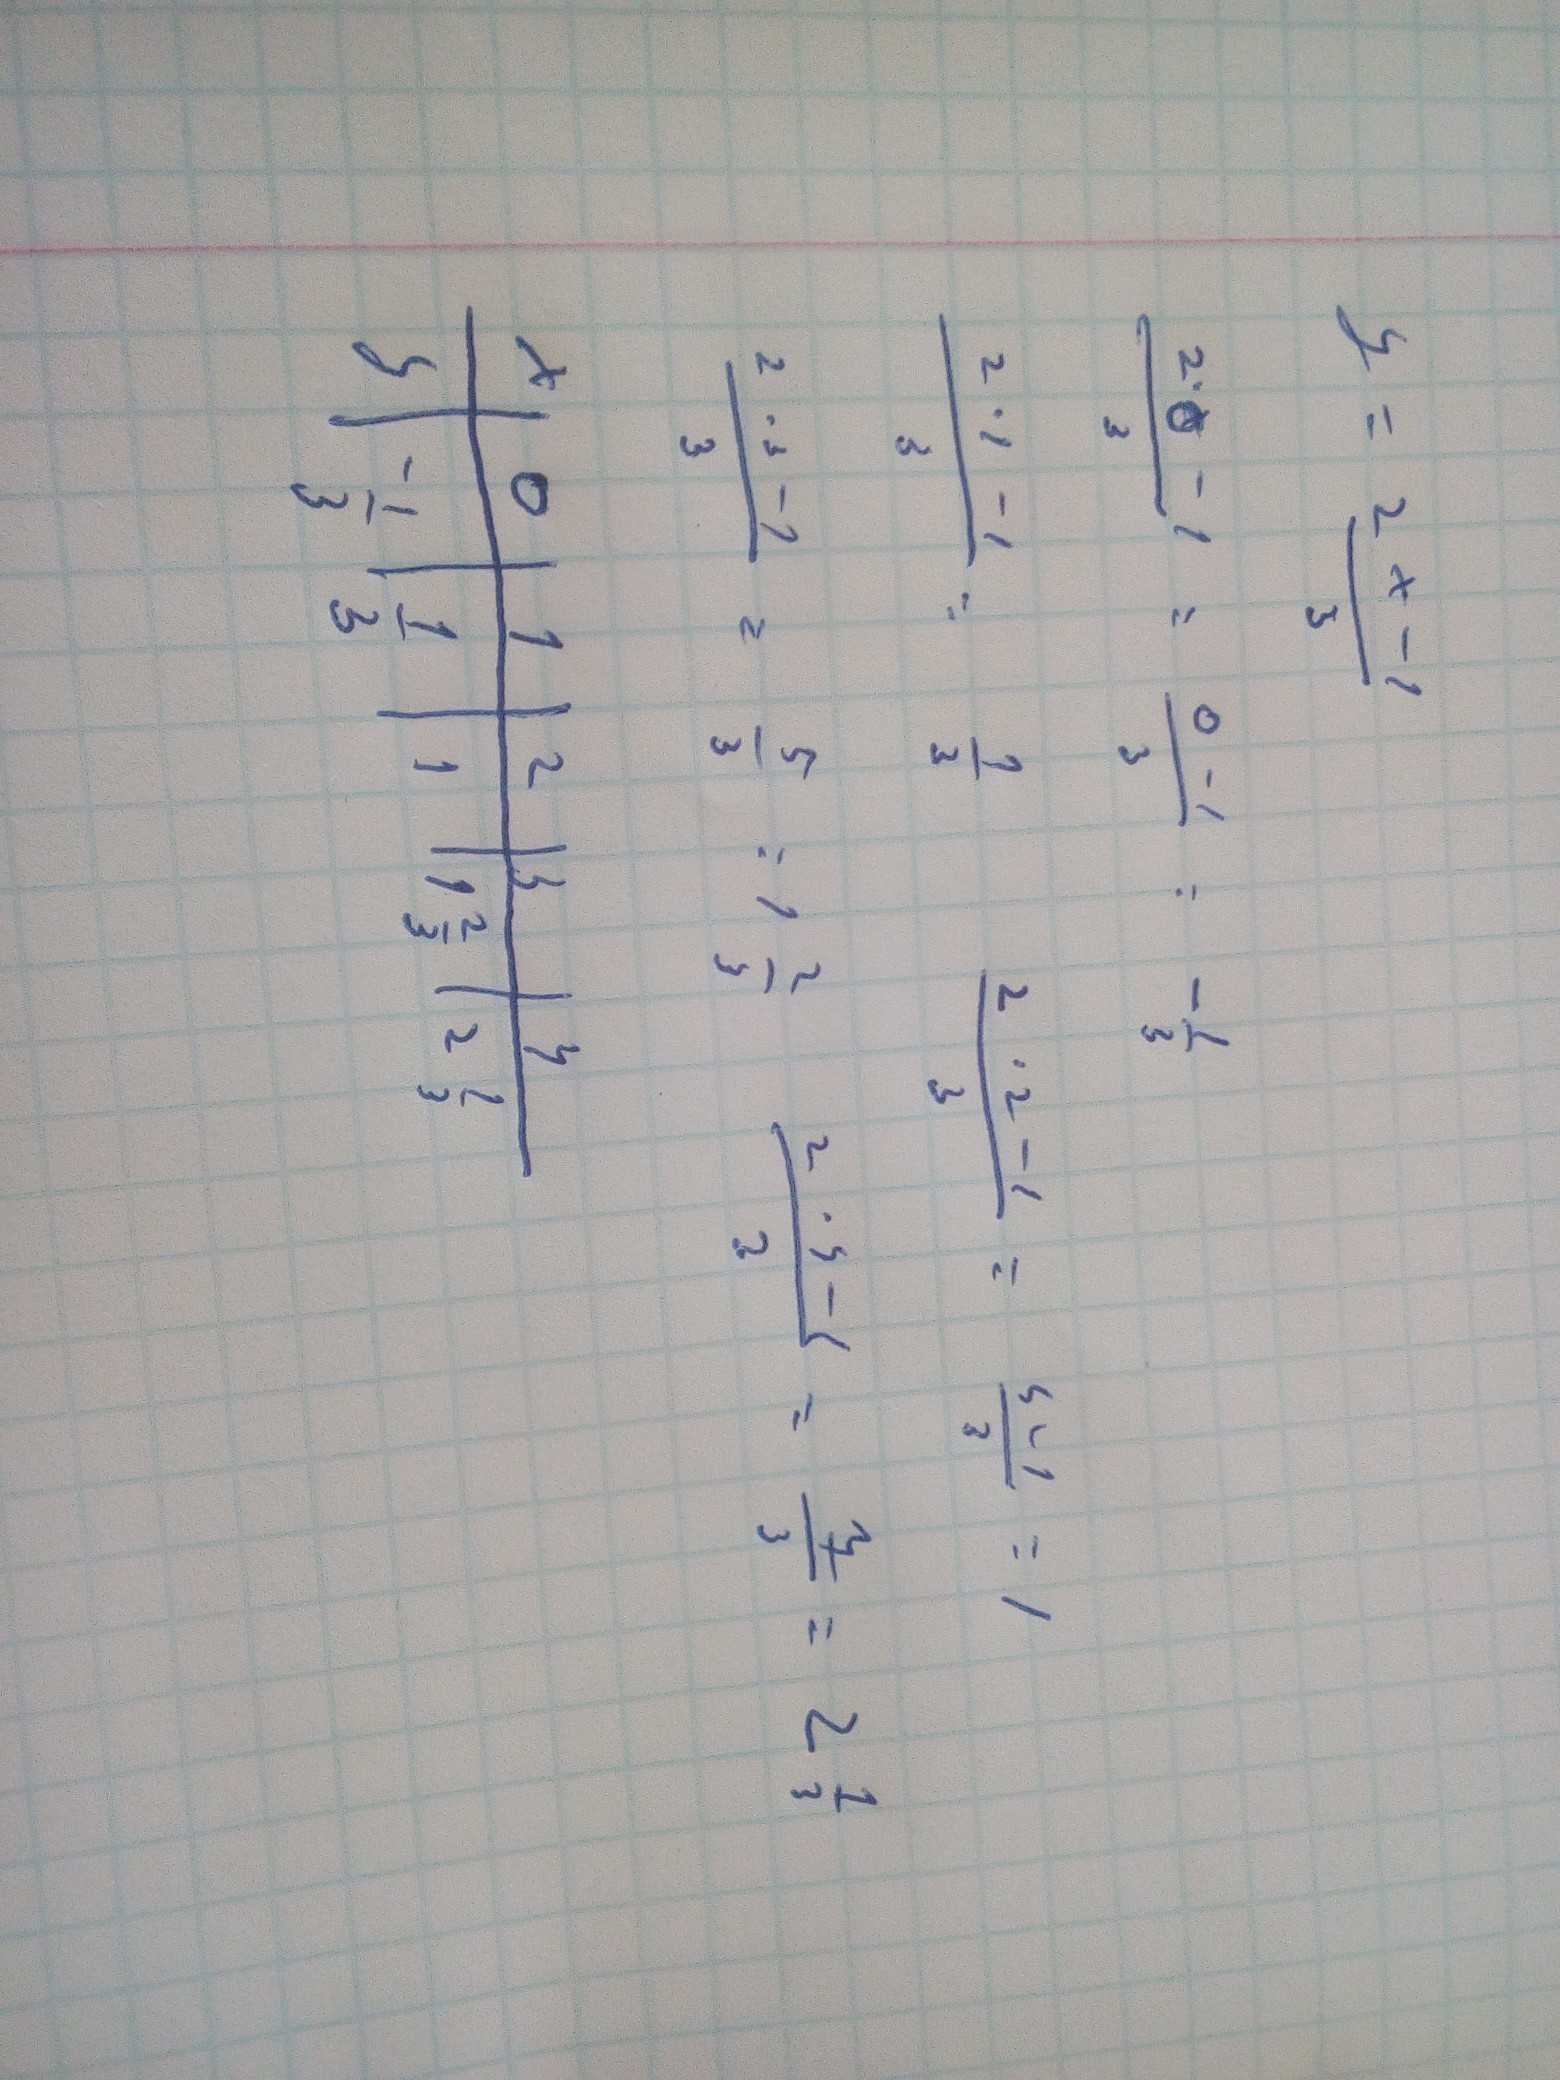 y = (2x - 1)/3
(2·0 - 1)/3 = (0 - 1)/3 = -1/3
(2·1 - 1)/3 = 1/3 (2·2 - 1)/3 = (4 - 1)/3 = 1
(2·3 - 1)/3 = 5/3 = 1 2/3 (2·4 - 1)/3 = 7/3 = 2 1/3
x | 0 | 1 | 2 | 3 | 4
y | -1/3 | 1/3 | 1 | 1 2/3 | 2 1/3